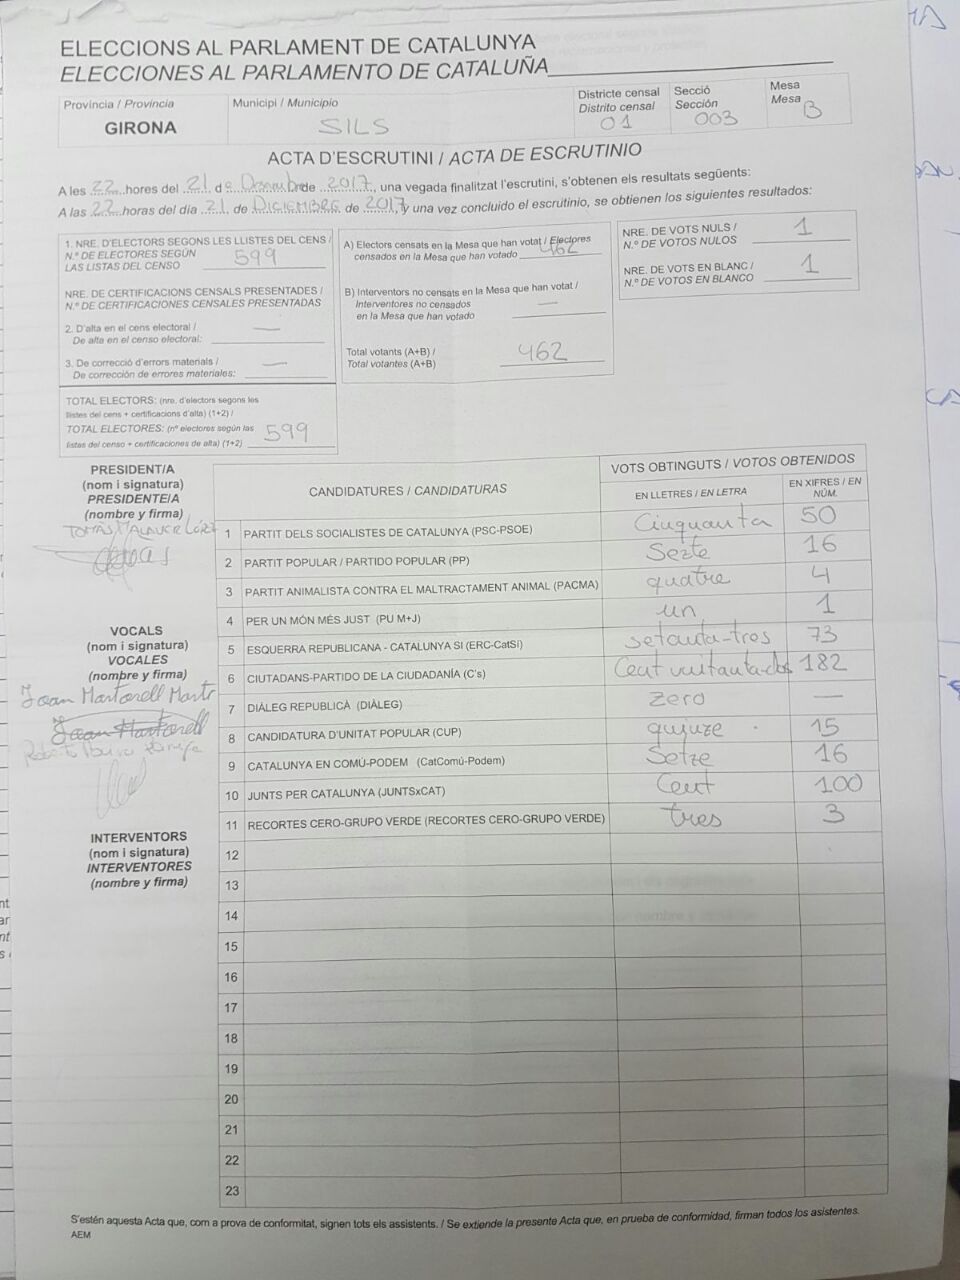 ELECCIONS AL PARLAMENT DE CATALUNYA
ELECCIONES AL PARLAMENTO DE CATALUÑA
Província / Provincia
GIRONA
Municipi / Municipio
SILS
Districte censal
Distrito censal
01
Secció
Sección
003
Mesa
Mesa
B
ACTA D'ESCRUTINI / ACTA DE ESCRUTINIO
A les 22 hores del 21 d de 2017, una vegada finalitzat l'escrutini, s'obtenen els resultats següents:
A las 22 horas del día 21 de DICIEMBRE de 2017, y una vez concluido el escrutinio, se obtienen los siguientes resultados:
1. NRE. D'ELECTORS SEGONS LES LLISTES DEL CENS /
N.º DE ELECTORES SEGÚN
LAS LISTAS DEL CENSO 599
NRE. DE CERTIFICACIONS CENSALS PRESENTADES /
N.º DE CERTIFICACIONES CENSALES PRESENTADAS
2. D'alta en el cens electoral /
De alta en el censo electoral: —
3. De correcció d'errors materials /
De corrección de errores materiales: —
TOTAL ELECTORS: (nre. d'electors segons les
llistes del cens + certificacions d'alta) (1+2) /
TOTAL ELECTORES: (nº electores según las
listas del censo + certificaciones de alta) (1+2) 599
A) Electors censats en la Mesa que han votat / Electores
censados en la Mesa que han votado 462
B) Interventors no censats en la Mesa que han votat /
Interventores no censados
en la Mesa que han votado —
Total votants (A+B) /
Total votantes (A+B) 462
NRE. DE VOTS NULS /
N.º DE VOTOS NULOS 1
NRE. DE VOTS EN BLANC /
N.º DE VOTOS EN BLANCO 1
PRESIDENT/A
(nom i signatura)
PRESIDENTE/A
(nombre y firma)
VOCALS
(nom i signatura)
VOCALES
(nombre y firma)
Joan Martorell
Joan Martorell
INTERVENTORS
(nom i signatura)
INTERVENTORES
(nombre y firma)
CANDIDATURES / CANDIDATURAS
VOTS OBTINGUTS / VOTOS OBTENIDOS
EN LLETRES / EN LETRA
EN XIFRES / EN NÚM.
1 PARTIT DELS SOCIALISTES DE CATALUNYA (PSC-PSOE) Cinquanta 50
2 PARTIT POPULAR / PARTIDO POPULAR (PP) Sezte 16
3 PARTIT ANIMALISTA CONTRA EL MALTRACTAMENT ANIMAL (PACMA) quatre 4
4 PER UN MÓN MÉS JUST (PU M+J) un 1
5 ESQUERRA REPUBLICANA - CATALUNYA SI (ERC-CatSí) setanta-tres 73
6 CIUTADANS-PARTIDO DE LA CIUDADANÍA (C's) Cent vuitanta-dos 182
7 DIÀLEG REPUBLICÀ (DIÀLEG) zero —
8 CANDIDATURA D'UNITAT POPULAR (CUP) quinze 15
9 CATALUNYA EN COMÚ-PODEM (CatComú-Podem) Setze 16
10 JUNTS PER CATALUNYA (JUNTSxCAT) Cent 100
11 RECORTES CERO-GRUPO VERDE (RECORTES CERO-GRUPO VERDE) tres 3
12
13
14
15
16
17
18
19
20
21
22
23
S'estén aquesta Acta que, com a prova de conformitat, signen tots els assistents. / Se extiende la presente Acta que, en prueba de conformidad, firman todos los asistentes.
AEM